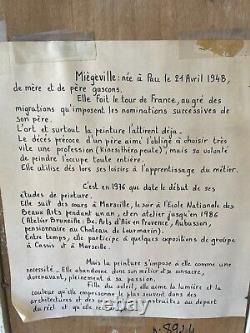 Miègeville : née à Pau le 21 Avril 1948,
de mère et de père gascons.
Elle fait le tour de France, au gré des
migrations qu'imposent les nominations successives de
son père.
L'art et surtout la peinture l'attirent déjà.
Le décès précoce d'un père aimé l'oblige à choisir très
vite une profession (kinésithérapeute), mais sa volonté
de peindre l'occupe toute entière.
Elle utilise dès lors ses loisirs à l'apprentissage du métier.
C'est en 1976 que date le début de ses
études de peinture.
Elle suit des cours à Marseille, soit à l'Ecole Nationale des
Beaux Arts pendant un an, et en atelier jusqu'en 1986
(Atelier Bruneille : Bx. Arts d'Aix en Provence, Aubusson,
pensionnaire au Chateau de Lourmarin).
Entre temps, elle participe à quelques expositions de groupe
à Cassis et à Marseille.
Mais la peinture s'impose à elle comme une
nécessité. Elle abandonne alors son métier et se consacre,
dorénavant, pleinement à sa passion.
Fille du soleil, elle aime la lumière et la
couleur qu'elle emprisonne le plus souvent dans des
architectures et des construites au départ
du réel et qu'elle